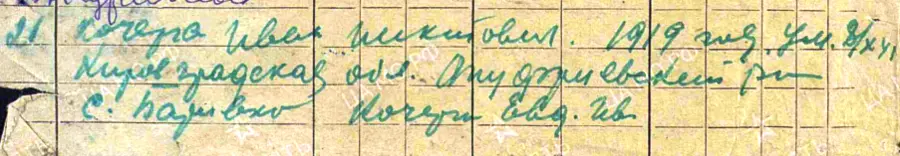 21 Кочерга Иван Никитович. 1919 год. Ум. 8/X 41
Кировградская обл. Онуфриевский р-н
с. Кочерга Евд. Ив.